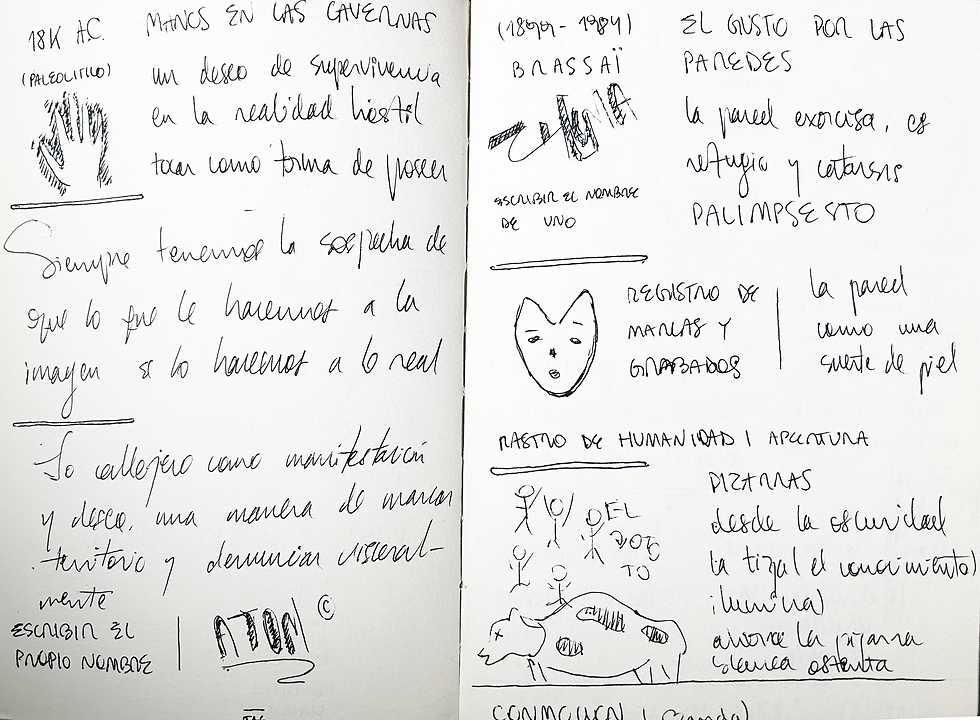 18K A.C.
MANOS EN LAS CAVERNAS
(PALEOLITICO)
un deseo de supervivencia
en la realidad hostil
tocar como forma de poseer
Siempre tenemos la sospecha de
que lo que le hacemos a la
imagen se lo hacemos a lo real
Lo callejero como manifestación
y deseo, una manera de marcar
territorio y denunciar visceral-
mente
ESCRIBIR EL
PROPIO NOMBRE
ATOM ©
(1899-1984)
BRASSAÏ
EL GUSTO POR LAS
PAREDES
la pared exorcisa, es
refugio y catarsis
PALIMPSESTO
ESCRIBIR EL NOMBRE
DE UNO
REGISTRO DE
MARCAS Y
GRABADOS
la pared
como una
suerte de piel
RASTRO DE HUMANIDAD / APERTURA
EL
TO
PIZARRAS
desde la oscuridad
la tiza (el conocimiento)
ilumina)
ahora la pizarra
blanca ostenta